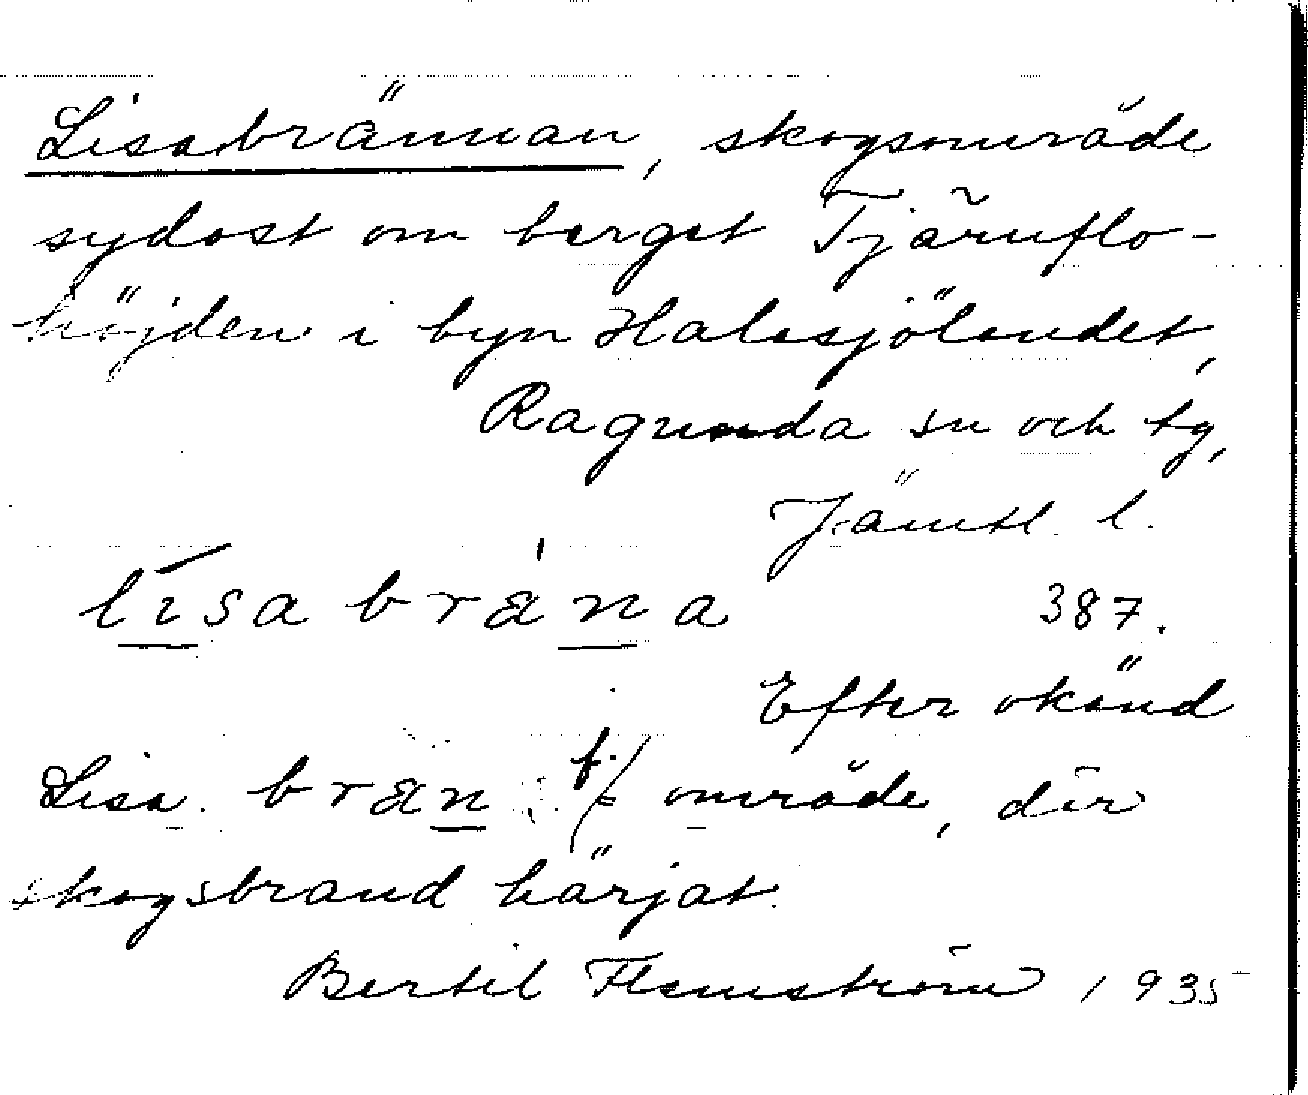 Lisabrännan, skogsområde
sydost om berget Tjärnflo-
höjden i byn Halasjölandet,
Ragunda sn och tg,
Jämtl. l.
līsabrǽna 387.
Efter okänd
Lisa. bræn f. = område, där
skogsbrand härjat.
Bertil Flemström 1935